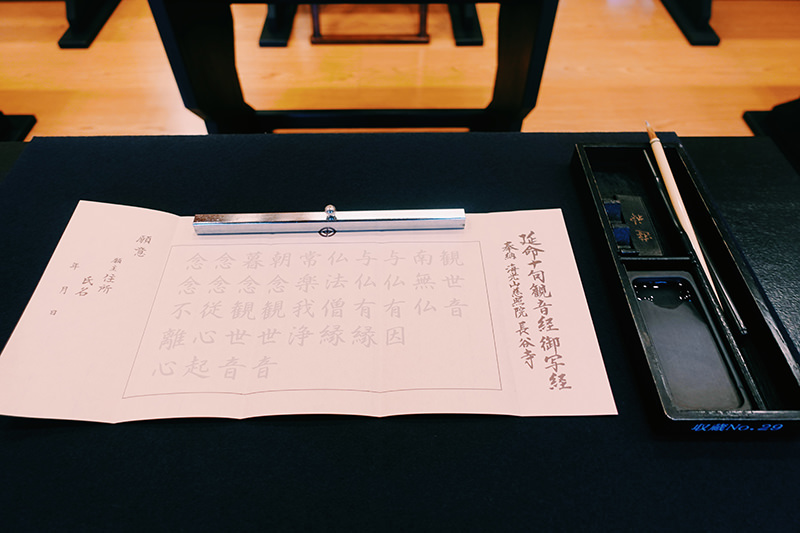 延命十句観音経 御写経
奉納 海光山慈照院 長谷寺
観世音
南無仏
与仏有因
与仏有縁
仏法僧縁
常楽我浄
朝念観世音
暮念観世音
念念従心起
念念不離心
願意
願主 住所
氏名
年 月 日
収蔵No.29